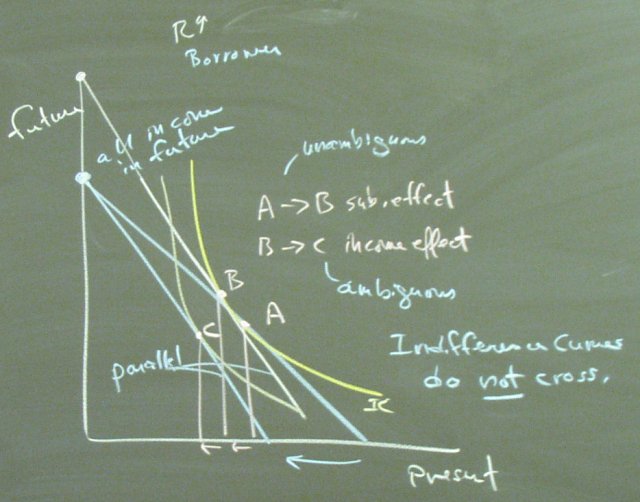 R↑
Borrower
future
all income
in future
unambiguous
A → B sub. effect
B → C income effect
ambiguous
B
A
C
parallel
Indifference Curves
do not cross.
IC
present